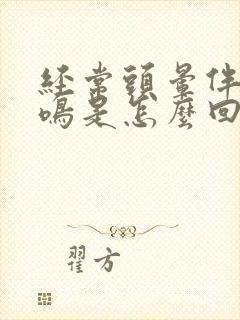 經常頭暈伴
鳴是怎麼回
翟方